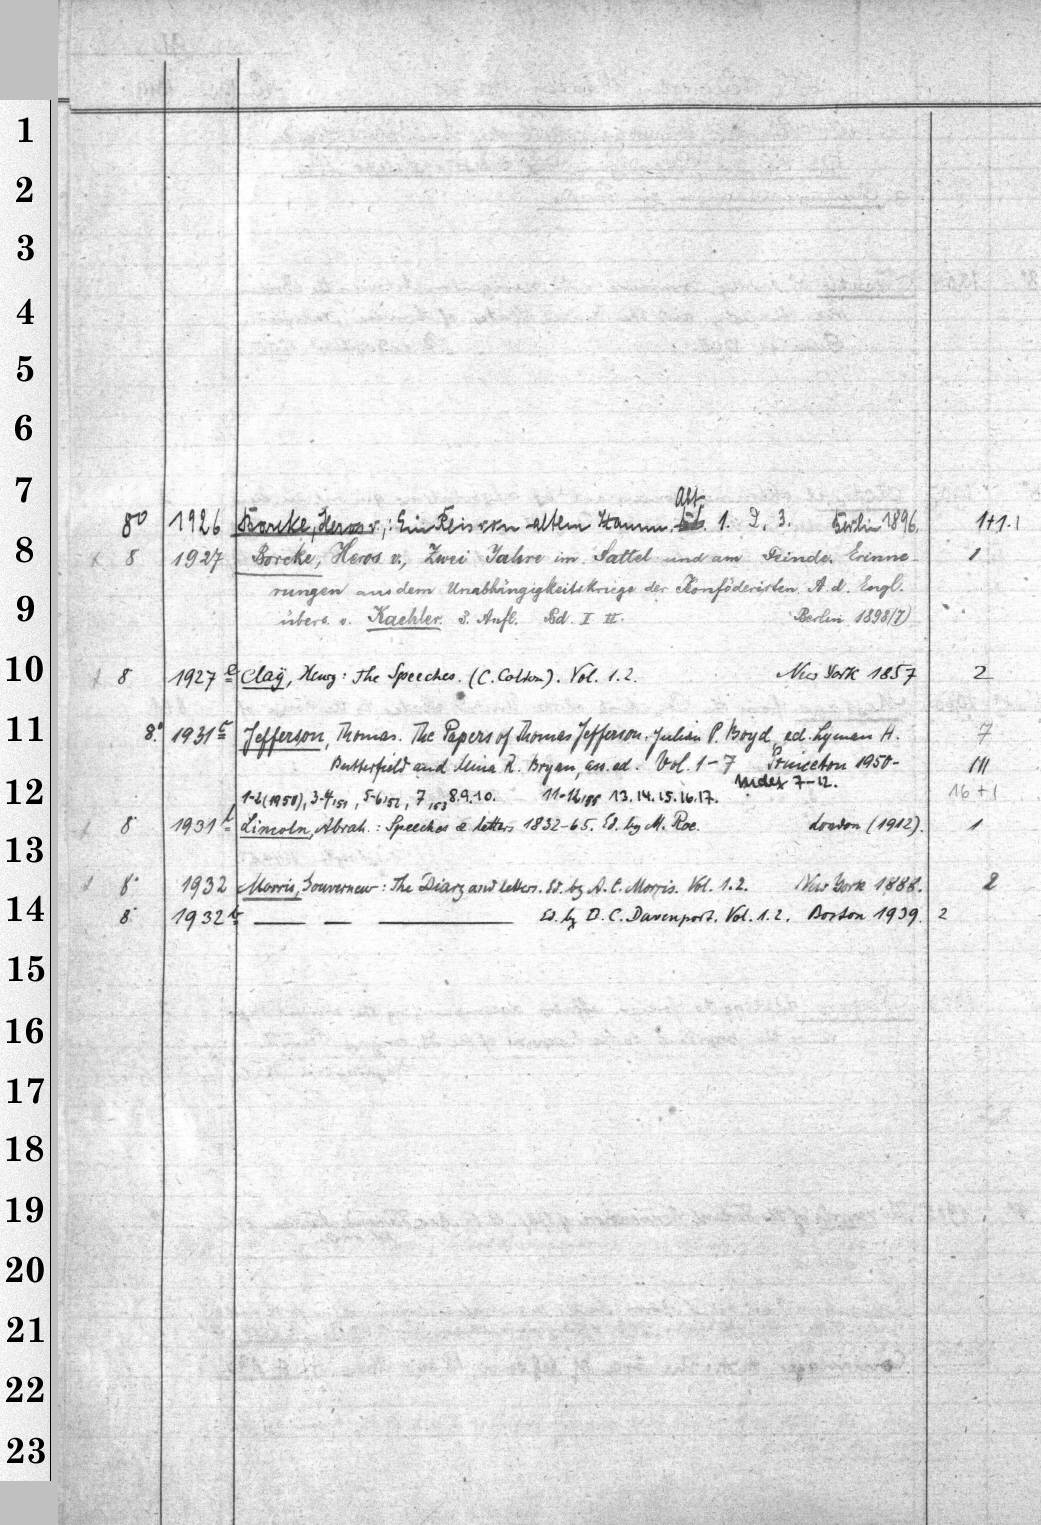 1
2
3
4
5
6
7
Abt.
8° 1926 Borcke, Heros v.: Ein Reis vom alten Stamm. Bd. 1. 2. 3. Berlin 1896. 1+1.1
8
x 8 1927 Borcke, Heros v., Zwei Jahre im Sattel und am Feinde. Erinne-
1
rungen aus dem Unabhängigkeitskriege der Konföderirten. A. d. Engl.
9
übers. v. Kaehler. 3. Aufl. Bd. I II. Berlin 1898(7)
10
x 8 1927 e Clay, Henry: The Speeches. (C. Colton). Vol. 1.2. New York 1857 2
11
8.° 1931 c Jefferson, Thomas. The Papers of Thomas Jefferson. Julian P. Boyd, ed. Lyman H. 7
Butterfield and Mina R. Bryan, ass. ed. Vol. 1-7 Princeton 1950- III
12
Index 7-12.
1-2(1950), 3-4/51, 5-6/52, 7/53 8.9.10. 11-12/55 13.14.15.16.17. 16+1
x 8 1931 Lincoln, Abrah.: Speeches & letters 1832-65. Ed. by M. Roe. London (1912). 1
13
x 8° 1932 Morris, Gouverneur: The Diary and letters. Ed. by A. C. Morris. Vol. 1.2. New York 1888. 2
14
8 1932 b — — — Ed. by B. C. Davenport. Vol. 1.2. Boston 1939. 2
15
16
17
18
19
20
21
22
23